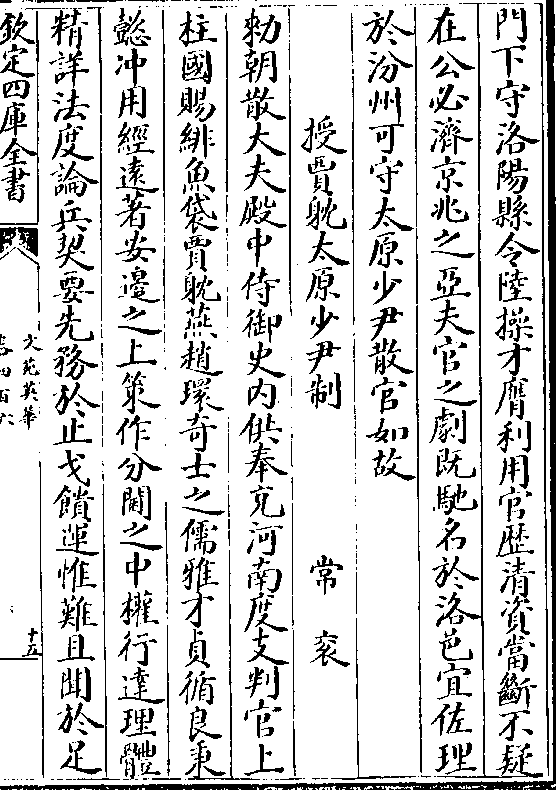 門下守洛陽縣令陸操才膺利用官歴清資當斷不疑
在公必濟京兆之亞夫官之劇既馳名於洛邑宜佐理
於汾州可守太原少尹散官如故
授賈躭太原少尹制 常袞
勑朝散大夫殿中侍御史内供奉充河南度支判官上
柱國賜緋魚袋賈躭燕趙環竒士之儒雅才貞循良秉
懿冲用經遠著安邊之上策作分閫之中權行達理體
精詳法度論兵契要先務於止戈饋運惟難且聞於足
欽定四庫全書
文苑英華
卷四百六
十五